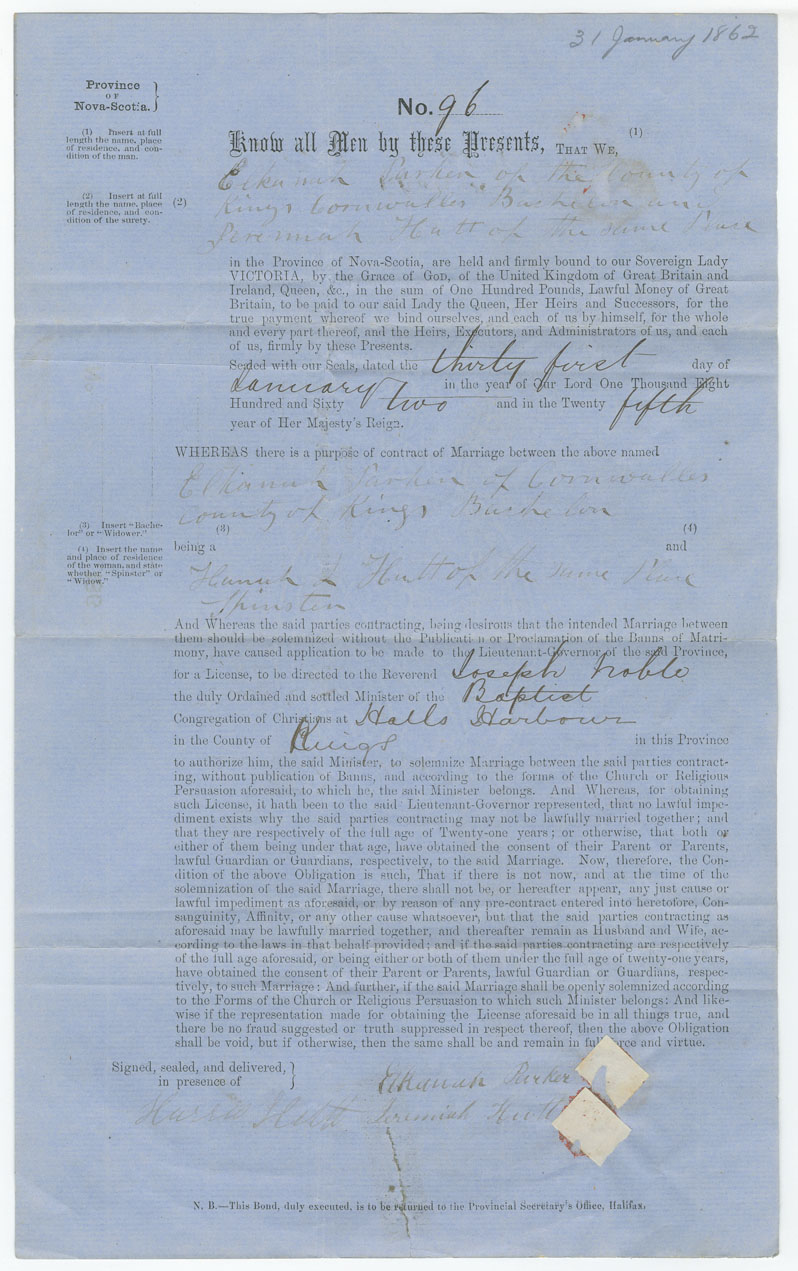 31 January 1862
Province
OF
Nova-Scotia.
No. 96
(1) Insert at full
length the name, place
of residence, and con-
dition of the man.
Know all Men by these Presents, THAT WE, (1)
(2) Insert at full
length the name, place
of residence, and con-
dition of the surety.
(2)
Elkanah Parker of the County of
Kings Cornwallis Bachelor and
Jeremiah Hutt of the same Place
in the Province of Nova-Scotia, are held and firmly bound to our Sovereign Lady
VICTORIA, by the Grace of GOD, of the United Kingdom of Great Britain and
Ireland, Queen, &c., in the sum of One Hundred Pounds, Lawful Money of Great
Britain, to be paid to our said Lady the Queen, Her Heirs and Successors, for the
true payment whereof we bind ourselves, and each of us by himself, for the whole
and every part thereof, and the Heirs, Executors, and Administrators of us, and each
of us, firmly by these Presents.
Sealed with our Seals, dated the thirty first day of
January in the year of Our Lord One Thousand Eight
Hundred and Sixty two and in the Twenty fifth
year of Her Majesty's Reign.
WHEREAS there is a purpose of contract of Marriage between the above named
Elkanah Parker of Cornwallis
County of Kings Bachelor
(3) Insert "Bache-
lor" or "Widower."
(4) Insert the name
and place of residence
of the woman, and state
whether "Spinster" or
"Widow."
(3) (4)
being a and
Hannah Hutt of the same Place
Spinster
And Whereas the said parties contracting, being desirous that the intended Marriage between
them should be solemnized without the Publicati n or Proclamation of the Banns of Matri-
mony, have caused application to be made to the Lieutenant-Governor of the said Province,
for a License, to be directed to the Reverend Joseph Noble
the duly Ordained and settled Minister of the Baptist
Congregation of Christians at Halls Harbour
in the County of Kings in this Province
to authorize him, the said Minister, to solemnize Marriage between the said parties contract-
ing, without publication of Banns, and according to the forms of the Church or Religious
Persuasion aforesaid, to which he, the said Minister belongs. And Whereas, for obtaining
such License, it hath been to the said Lieutenant-Governor represented, that no lawful impe-
diment exists why the said parties contracting may not be lawfully married together; and
that they are respectively of the full age of Twenty-one years; or otherwise, that both or
either of them being under that age, have obtained the consent of their Parent or Parents,
lawful Guardian or Guardians, respectively, to the said Marriage. Now, therefore, the Con-
dition of the above Obligation is such, That if there is not now, and at the time of the
solemnization of the said Marriage, there shall not be, or hereafter appear, any just cause or
lawful impediment as aforesaid, or by reason of any pre-contract entered into heretofore, Con-
sanguinity, Affinity, or any other cause whatsoever, but that the said parties contracting as
aforesaid may be lawfully married together, and thereafter remain as Husband and Wife, ac-
cording to the laws in that behalf provided; and if the said parties contracting are respectively
of the full age aforesaid, or being either or both of them under the full age of twenty-one years,
have obtained the consent of their Parent or Parents, lawful Guardian or Guardians, respec-
tively, to such Marriage: And further, if the said Marriage shall be openly solemnized according
to the Forms of the Church or Religious Persuasion to which such Minister belongs: And like-
wise if the representation made for obtaining the License aforesaid be in all things true, and
there be no fraud suggested or truth suppressed in respect thereof, then the above Obligation
shall be void, but if otherwise, then the same shall be and remain in full force and virtue.
Signed, sealed, and delivered,
in presence of
Elkanah Parker
Jeremiah Hutt
N. B.—This Bond, duly executed, is to be returned to the Provincial Secretary's Office, Halifax.